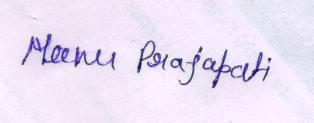 Meenu Prajapati